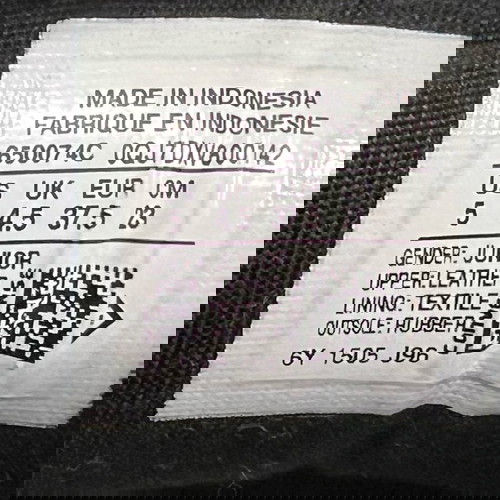 MADE IN INDONESIA
FABRIQUE EN INDONESIE
650074C 0QJTDNA00142
US UK EUR CM
5 4.5 37.5 23
GENDER: JUNIOR
UPPER: LEATHER
LINING: TEXTILE
OUTSOLE: RUBBER
6Y 1505 J96